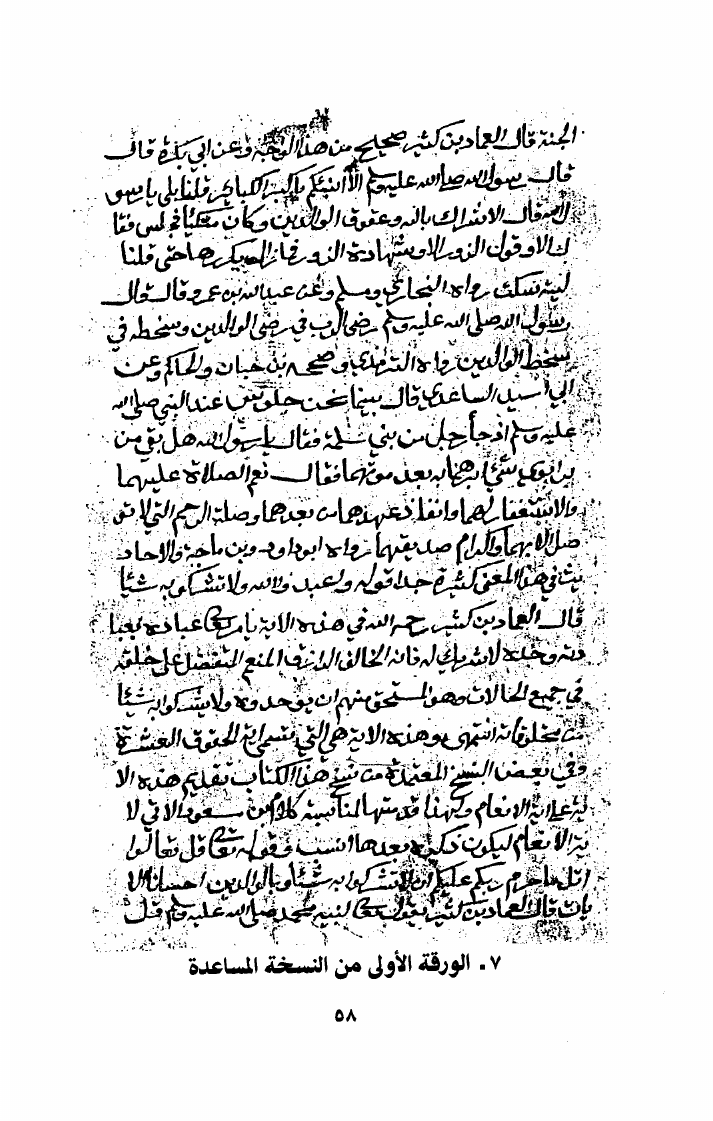 الجنة قال العماد بن كثير صحيح من هذا الوجه وعن ابي بكرة قال
قال رسول الله صلى الله عليه وسلم الا انبئكم باكبر الكبائر قلنا بلى يا رسو
ل الله قال الاشراك بالله وعقوق الوالدين وكان متكئا فجلس فقا
ل الا وقول الزور الا وشهادة الزور فما زال يكررها حتى قلنا
ليته سكت رواه البخاري ومسلم وعن عبد الله بن عمرو قال قال
رسول الله صلى الله عليه وسلم رضى الرب في رضى الوالدين وسخطه في
سخط الوالدين رواه الترمذي وصححه بن حبان والحاكم وعن
ابي اسيد الساعدي قال بينما نحن جلوس عند النبي صلى الله
عليه وسلم اذ جا رجل من بني سلمة فقال يا رسول الله هل بقي من
بر ابوي شئ ابرهما به بعد موتهما فقال نعم الصلاة عليهما
والاستغفار لهما وانفاذ عهدهما من بعدهما وصلة الرحم التي لا تو
صل الا بهما واكرام صديقهما رواه ابو داود وبن ماجة والاحاد
يث في هذا المعنى كثيرة جدا قوله واعبدوا الله ولا تشركوا به شيئا
قال العماد بن كثير رحمه الله في هذه الاية يامر تعالى عباده بعبا
دته وحده لا شريك له فانه الخالق الرازق المنعم المتفضل على خلقه
في جميع الحالات وهو المستحق منهم ان يوحدوه ولا يشركوا به شيئا
من مخلوقاته انتهى وهذه الاية هي التي تسمى اية الحقوق العشرة
وفي بعض النسخ المعتمدة من نسخ هذا الكتاب تقديم هذه الا
ية على اية الانعام ولهذا قدمتها لمناسبة كلام بن مسعود الاتي لا
ية الانعام ليكون ذكره بعدها انسب وقوله تعالى قل تعالوا
اتل ما حرم ربكم عليكم ان لا تشركوا به شيئا وبالوالدين احسانا الا
يات قال العماد بن كثير يقول تعالى لنبيه محمد صلى الله عليه وسلم قل
٧ . الورقة الأولى من النسخة المساعدة
٥٨